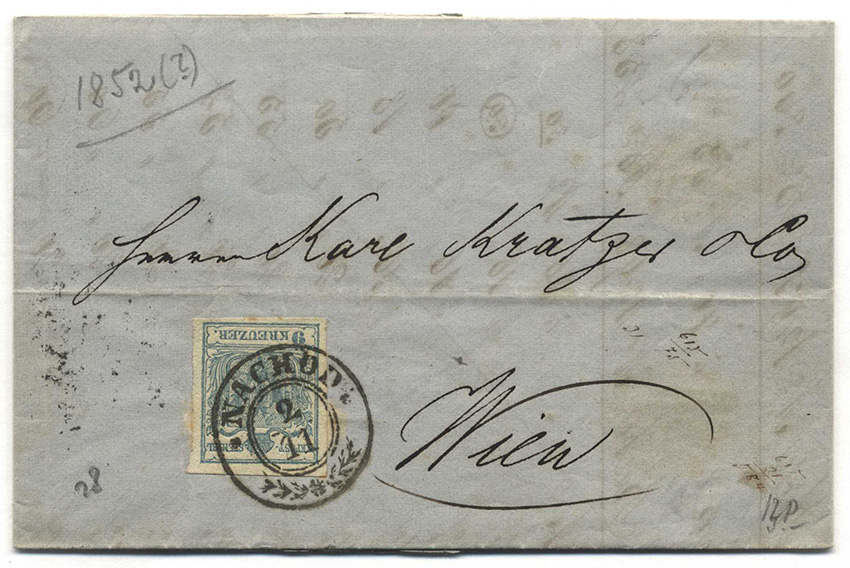 1852(?)
Herren Karl Kratzer & Co
9 KREUZER
NACHOD
2
11
Wien
28